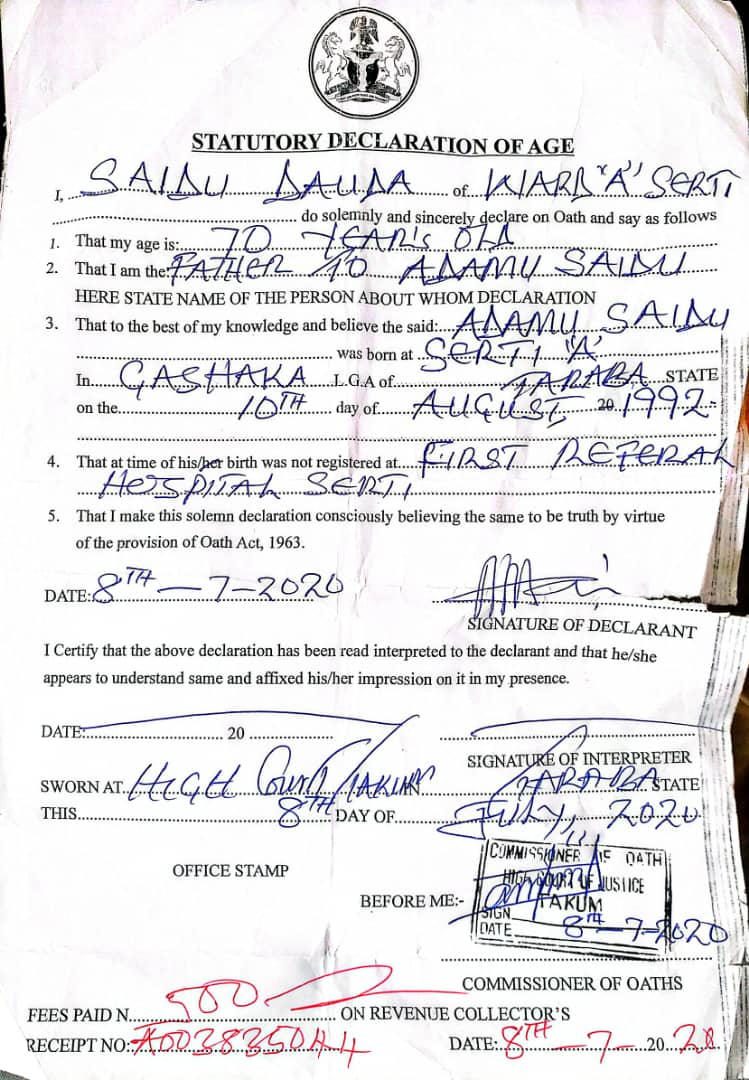 STATUTORY DECLARATION OF AGE
I, SAIDU DAUDA of WARD "A" SERTI
do solemnly and sincerely declare on Oath and say as follows
1. That my age is: 70 YEAR'S OLD
2. That I am the: FATHER TO ADAMU SAIDU
HERE STATE NAME OF THE PERSON ABOUT WHOM DECLARATION
3. That to the best of my knowledge and believe the said: ADAMU SAIDU
was born at SERTI 'A'
In GASHAKA L.G.A of TARABA STATE
on the 10TH day of AUGUST, 20 1992
4. That at time of his/her birth was not registered at FIRST REFERAL
HOSPITAL SERTI
5. That I make this solemn declaration consciously believing the same to be truth by virtue
of the provision of Oath Act, 1963.
DATE: 8TH - 7 - 2020
SIGNATURE OF DECLARANT
I Certify that the above declaration has been read interpreted to the declarant and that he/she
appears to understand same and affixed his/her impression on it in my presence.
DATE: 20
SIGNATURE OF INTERPRETER
SWORN AT HIGH Court TAKUM TARABA STATE
THIS 8TH DAY OF JULY, 2020
COMMISSIONER OF OATH
HIGH COURT OF JUSTICE
TAKUM
OFFICE STAMP
BEFORE ME:-
SIGN
DATE 8TH - 7 - 2020
COMMISSIONER OF OATHS
FEES PAID N 500 ON REVENUE COLLECTOR'S
RECEIPT NO: A003835044 DATE: 8TH - 7 - 2020